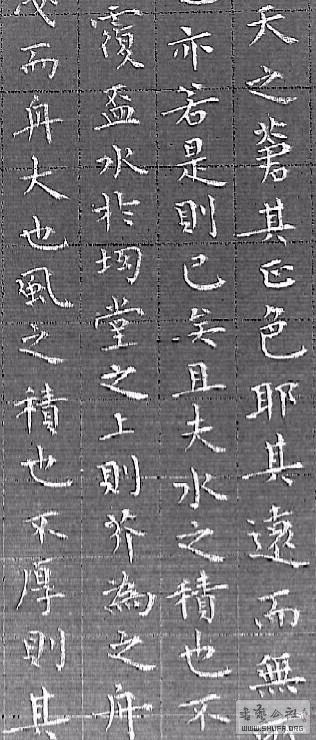 天之蒼其正色耶其遠而無
亦若是則已矣且夫水之積也不
覆盃水於坳堂之上則芥為之舟
而舟大也風之積也不厚則其
WWW.SHUFA.ORG